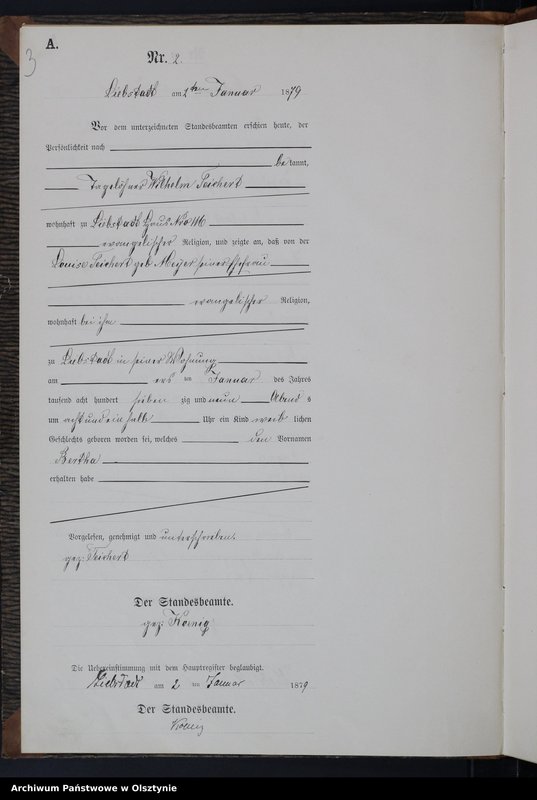 3
A.
Nr. 2.
Liebstadt am 2ten Januar 1879
Vor dem unterzeichneten Standesbeamten erschien heute, der
Persönlichkeit nach
be kannt,
Tagelöhner Wilhelm Teichert
wohnhaft zu Liebstadt Haus Nro 116
evangelischer Religion, und zeigte an, daß von der
Louise Teichert geb Meyer seiner Ehefrau
evangelischer Religion,
wohnhaft bei ihm
zu Liebstadt in seiner Wohnung
am ersten Januar des Jahres
tausend acht hundert sieben zig und neun Abend s
um acht und ein halb Uhr ein Kind weib lichen
Geschlechts geboren worden sei, welches den Vornamen
Bertha
erhalten habe
Vorgelesen, genehmigt und unterschrieben.
gez: Teichert
Der Standesbeamte.
gez: Koenig
Die Uebereinstimmung mit dem Hauptregister beglaubigt.
Liebstadt am 2 ten Januar 1879
Der Standesbeamte.
Koenig
Archiwum Państwowe w Olsztynie